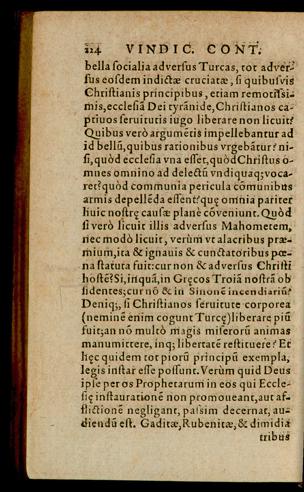 224 VINDIC. CONT.
bella ſocialia adverſus Turcas, tot adver-
ſus eoſdem indictæ cruciatæ, ſi quibuſvis
Chriſtianis principibus, etiam remotiſsi-
mis, eccleſiā Dei tyrānide, Chriſtianos ca-
ptiuos ſeruitutis iugo liberare non licuit?
Quibus verò argumētis impellebantur ad
id bellū, quibus rationibus vrgebātur? ni-
ſi, quòd eccleſia vna eſſet, quòd Chriſtus o-
mnes omnino ad delectū vndiquaq; voca-
ret? quòd communia pericula cōmunibus
armis depellēda eſſent? quę omnia pariter
huic noſtrę cauſæ planè cōveniunt. Quòd
ſi verò licuit illis adverſus Mahometem,
nec modò licuit, verùm vt alacribus præ-
mium, ita & ignauis & cunctatoribus pœ-
na ſtatuta fuit: cur non & adverſus Chriſti
hoſtē? Si, inquā, in Gręcos Troiā noſtrā ob
ſidentes; cur nō & in Sinonē incendiariū?
Deniq;, ſi Chriſtianos ſeruitute corporea
(neminē enim cogunt Turcę) liberare piū
fuit; an nō multò magis miſerorū animas
manumittere, inq; libertatē reſtituere? Et
hęc quidem tot piorū principū exempla,
legis inſtar eſſe poſſunt. Verùm quid Deus
ipſe per os Prophetarum in eos qui Eccle-
ſię inſtaurationē non promoueant, aut af-
flictionē negligant, paſsim decernat, au-
diendū eſt. Gaditæ, Rubenitæ, & dimidia
tribus